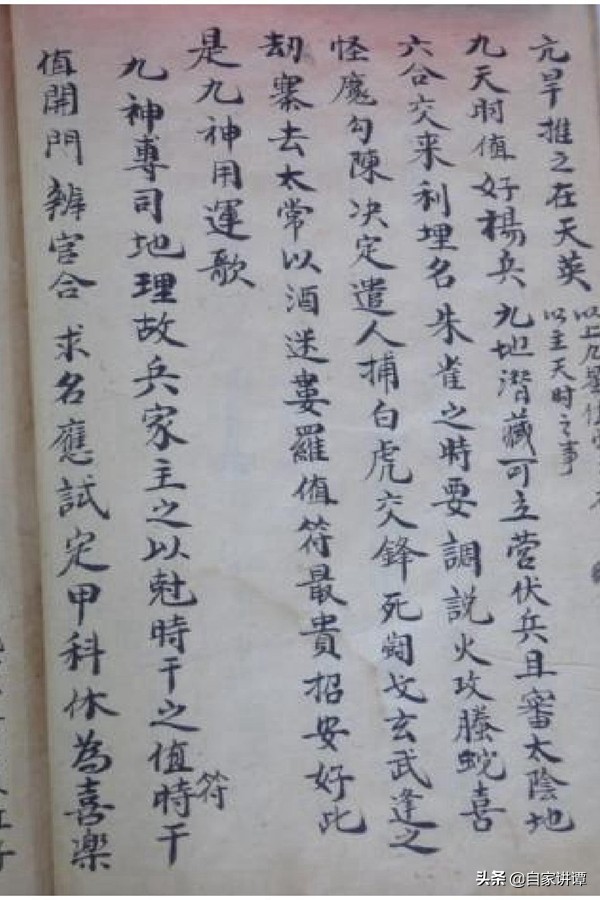 亢旱推之在天英
以上九星值
以主天时之事
九天时值好楊兵九地潛藏可立营伏兵且審太陰地
六合交来利埋名朱雀之時要調説火攻螣蛇喜
怪魔勾陳决定遣人捕白虎交鋒死鬪戈玄武逢之
劫寨去太常以酒迷婁羅值符最貴招安好此
是九神用運歌
九神專司地理故兵家主之以尅時干之值符時干
值開門辦官合求名應試定甲科休為喜樂
头条 @自家讲谭